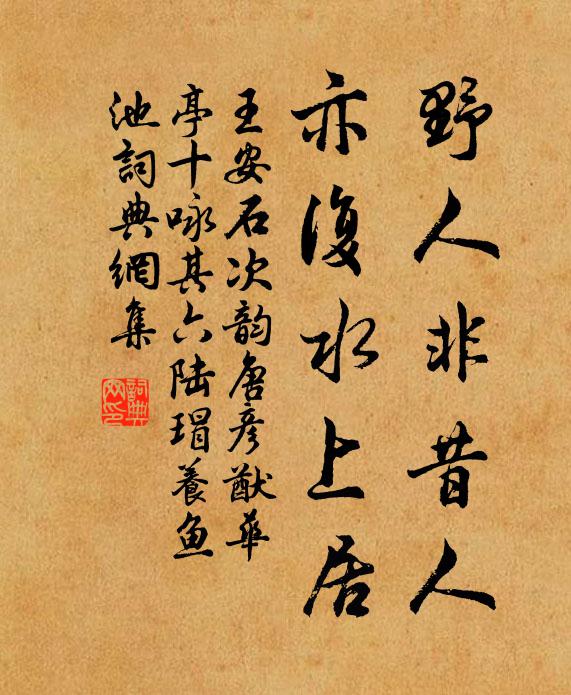 野人非昔人
亦復水上居
王安石次韵唐彦猷華
亭十咏其六陆瑁養魚
池詞典網集
詞典網印